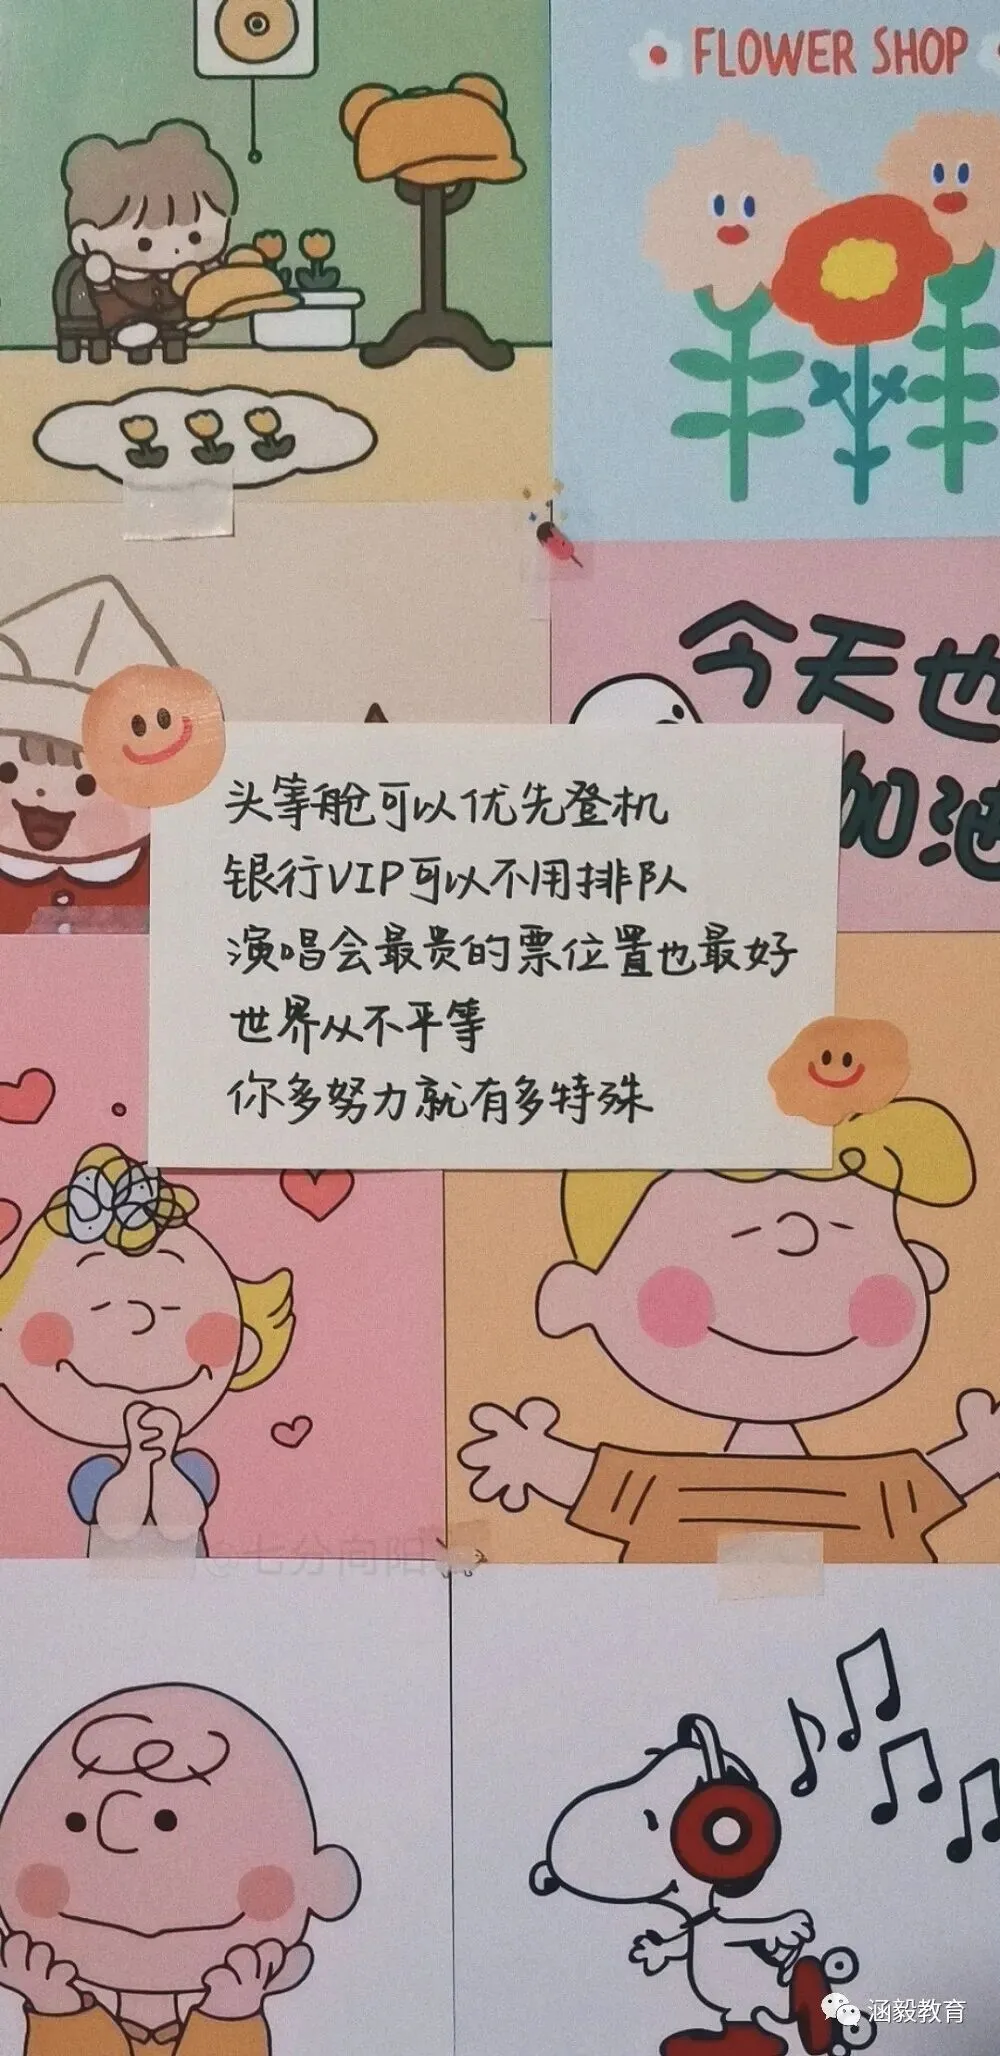 FLOWER SHOP
今天也
加油
头等舱可以优先登机
银行VIP可以不用排队
演唱会最贵的票位置也最好
世界从不平等
你多努力就有多特殊
@七分向阳
涵毅教育